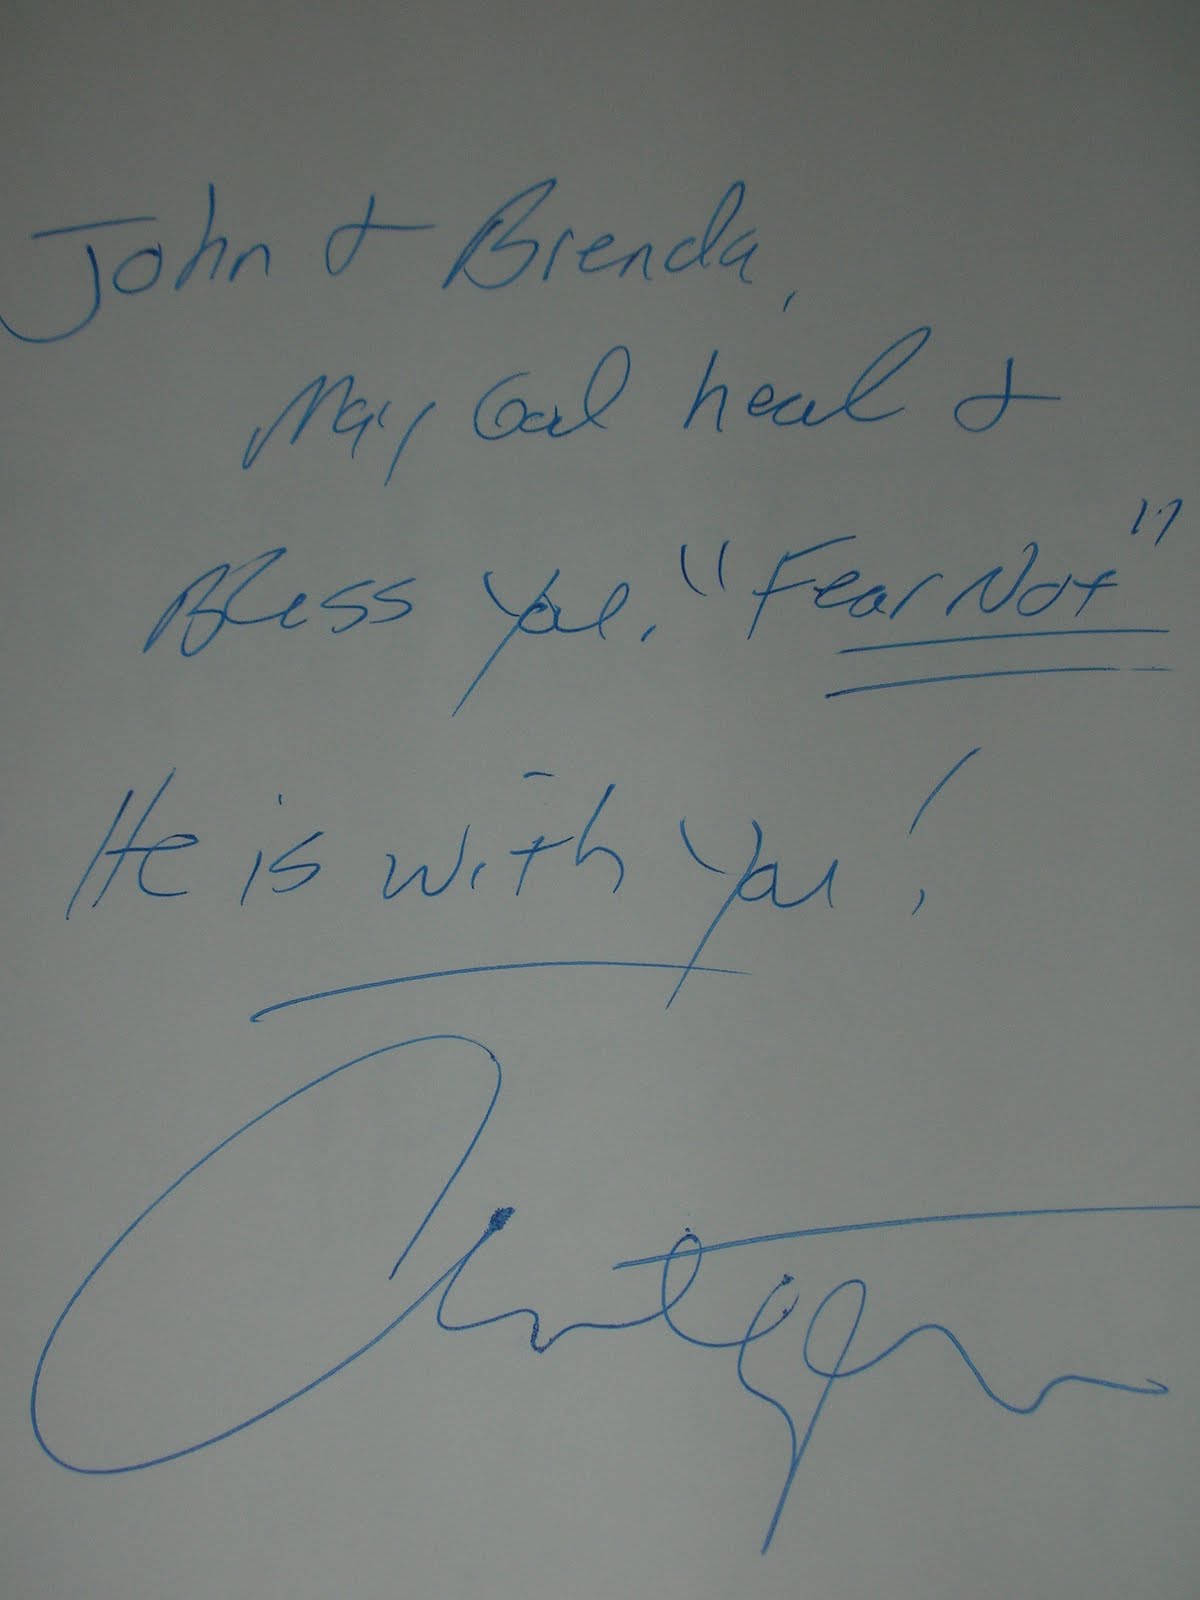 John & Brenda,
May God heal &
Bless you. "Fear Not"
He is with you!